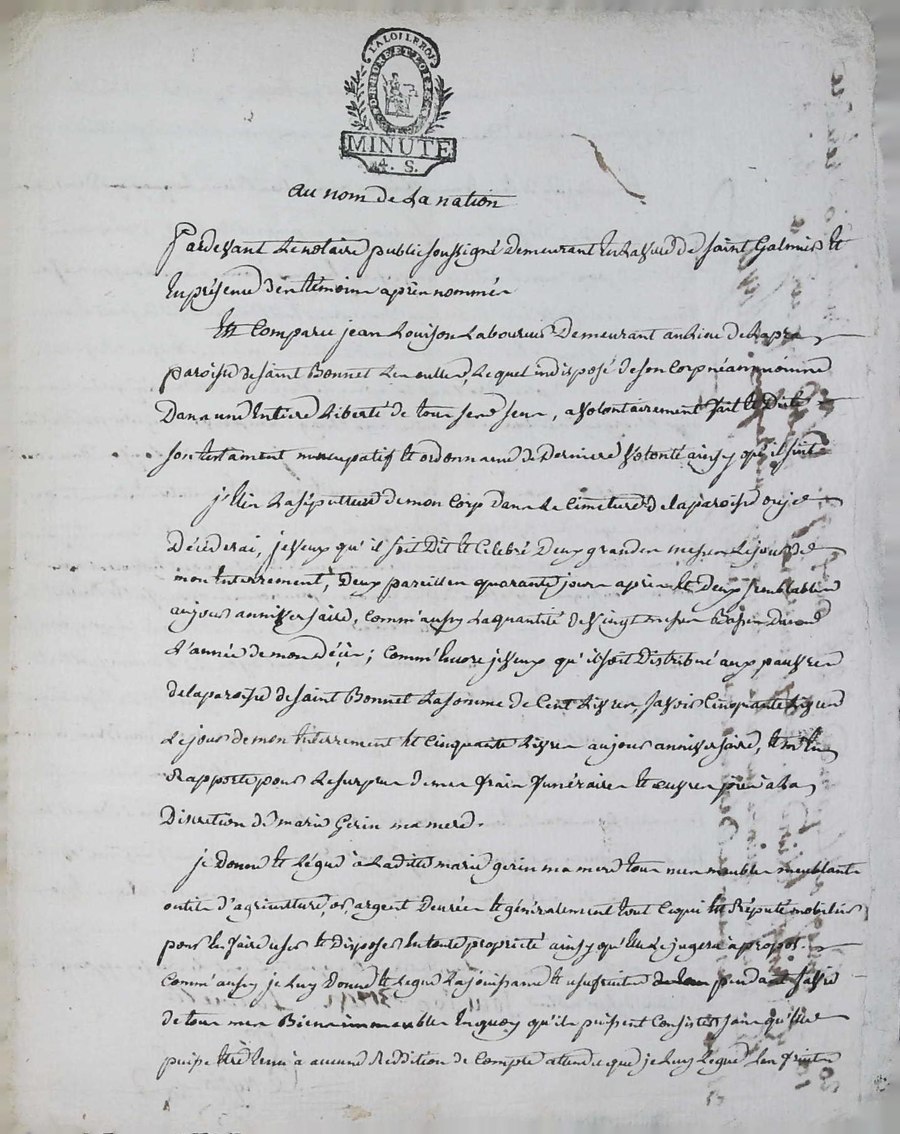 LA LOI LE ROI
D. RHONE ET LOIRE
MINUTE
4. S.
au nom de La nation
Pardevant Le notaire public soussigné Demeurant En La ville de saint Galmier Et
En présence Des témoins après nommés
Est Comparu jean Louison Laboureur Demeurant au Lieu de
paroisse de saint Bonnet Les oulles, Lequel indisposé de son Corp néanmoins
Dans une Entiere Liberté de tous ses sens, a volontairement fait Et Dicté
son testament nuncupatif Et ordonnance de Derniere volonté ainsy qu'il suit
j'Elis La sépulture de mon Corp dans Le Cimetiere de la paroisse ou je
Décéderai, je veux qu'il soit Dit Et Célébré Deux grandes messes Le jour de
mon Enterrement, Deux pareilles quarante jours après Et Deux semblables
au jour anniversaire, Comm'aussy La quantité de vingt messes Basses Durant
L'année de mon décès; Comm'Encore je veux qu'il soit Distribué aux pauvres
de la paroisse de saint Bonnet La somme de Cent Livres, savoir Cinquante Livres
Le jour de mon Enterrement Et Cinquante Livres au jour anniversaire,
Rapporte pour Le surplus de mes frais funéraires Et œuvres pies à La
Discretion de marie Gerin ma mere.
je Donne Et Légue à La ditte marie gerin ma mere tous mes meubles meublants
outils d'agriculture, or, argent Denrées Et généralement tout Ce qui Est Réputé mobilier
pour En faire user Et Disposer En toute propriété ainsy qu'Elle Le jugera à propos.
Comm'aussy je Luy Donne Et Legue La jouissance Et usufruit pendant sa vie
de tous mes Biens immeubles En quoy qu'ils puissent Consister sans qu'Elle
puisse Etre tenue à aucune Reddition de Compte attendu que je Luy Legue Les fruits